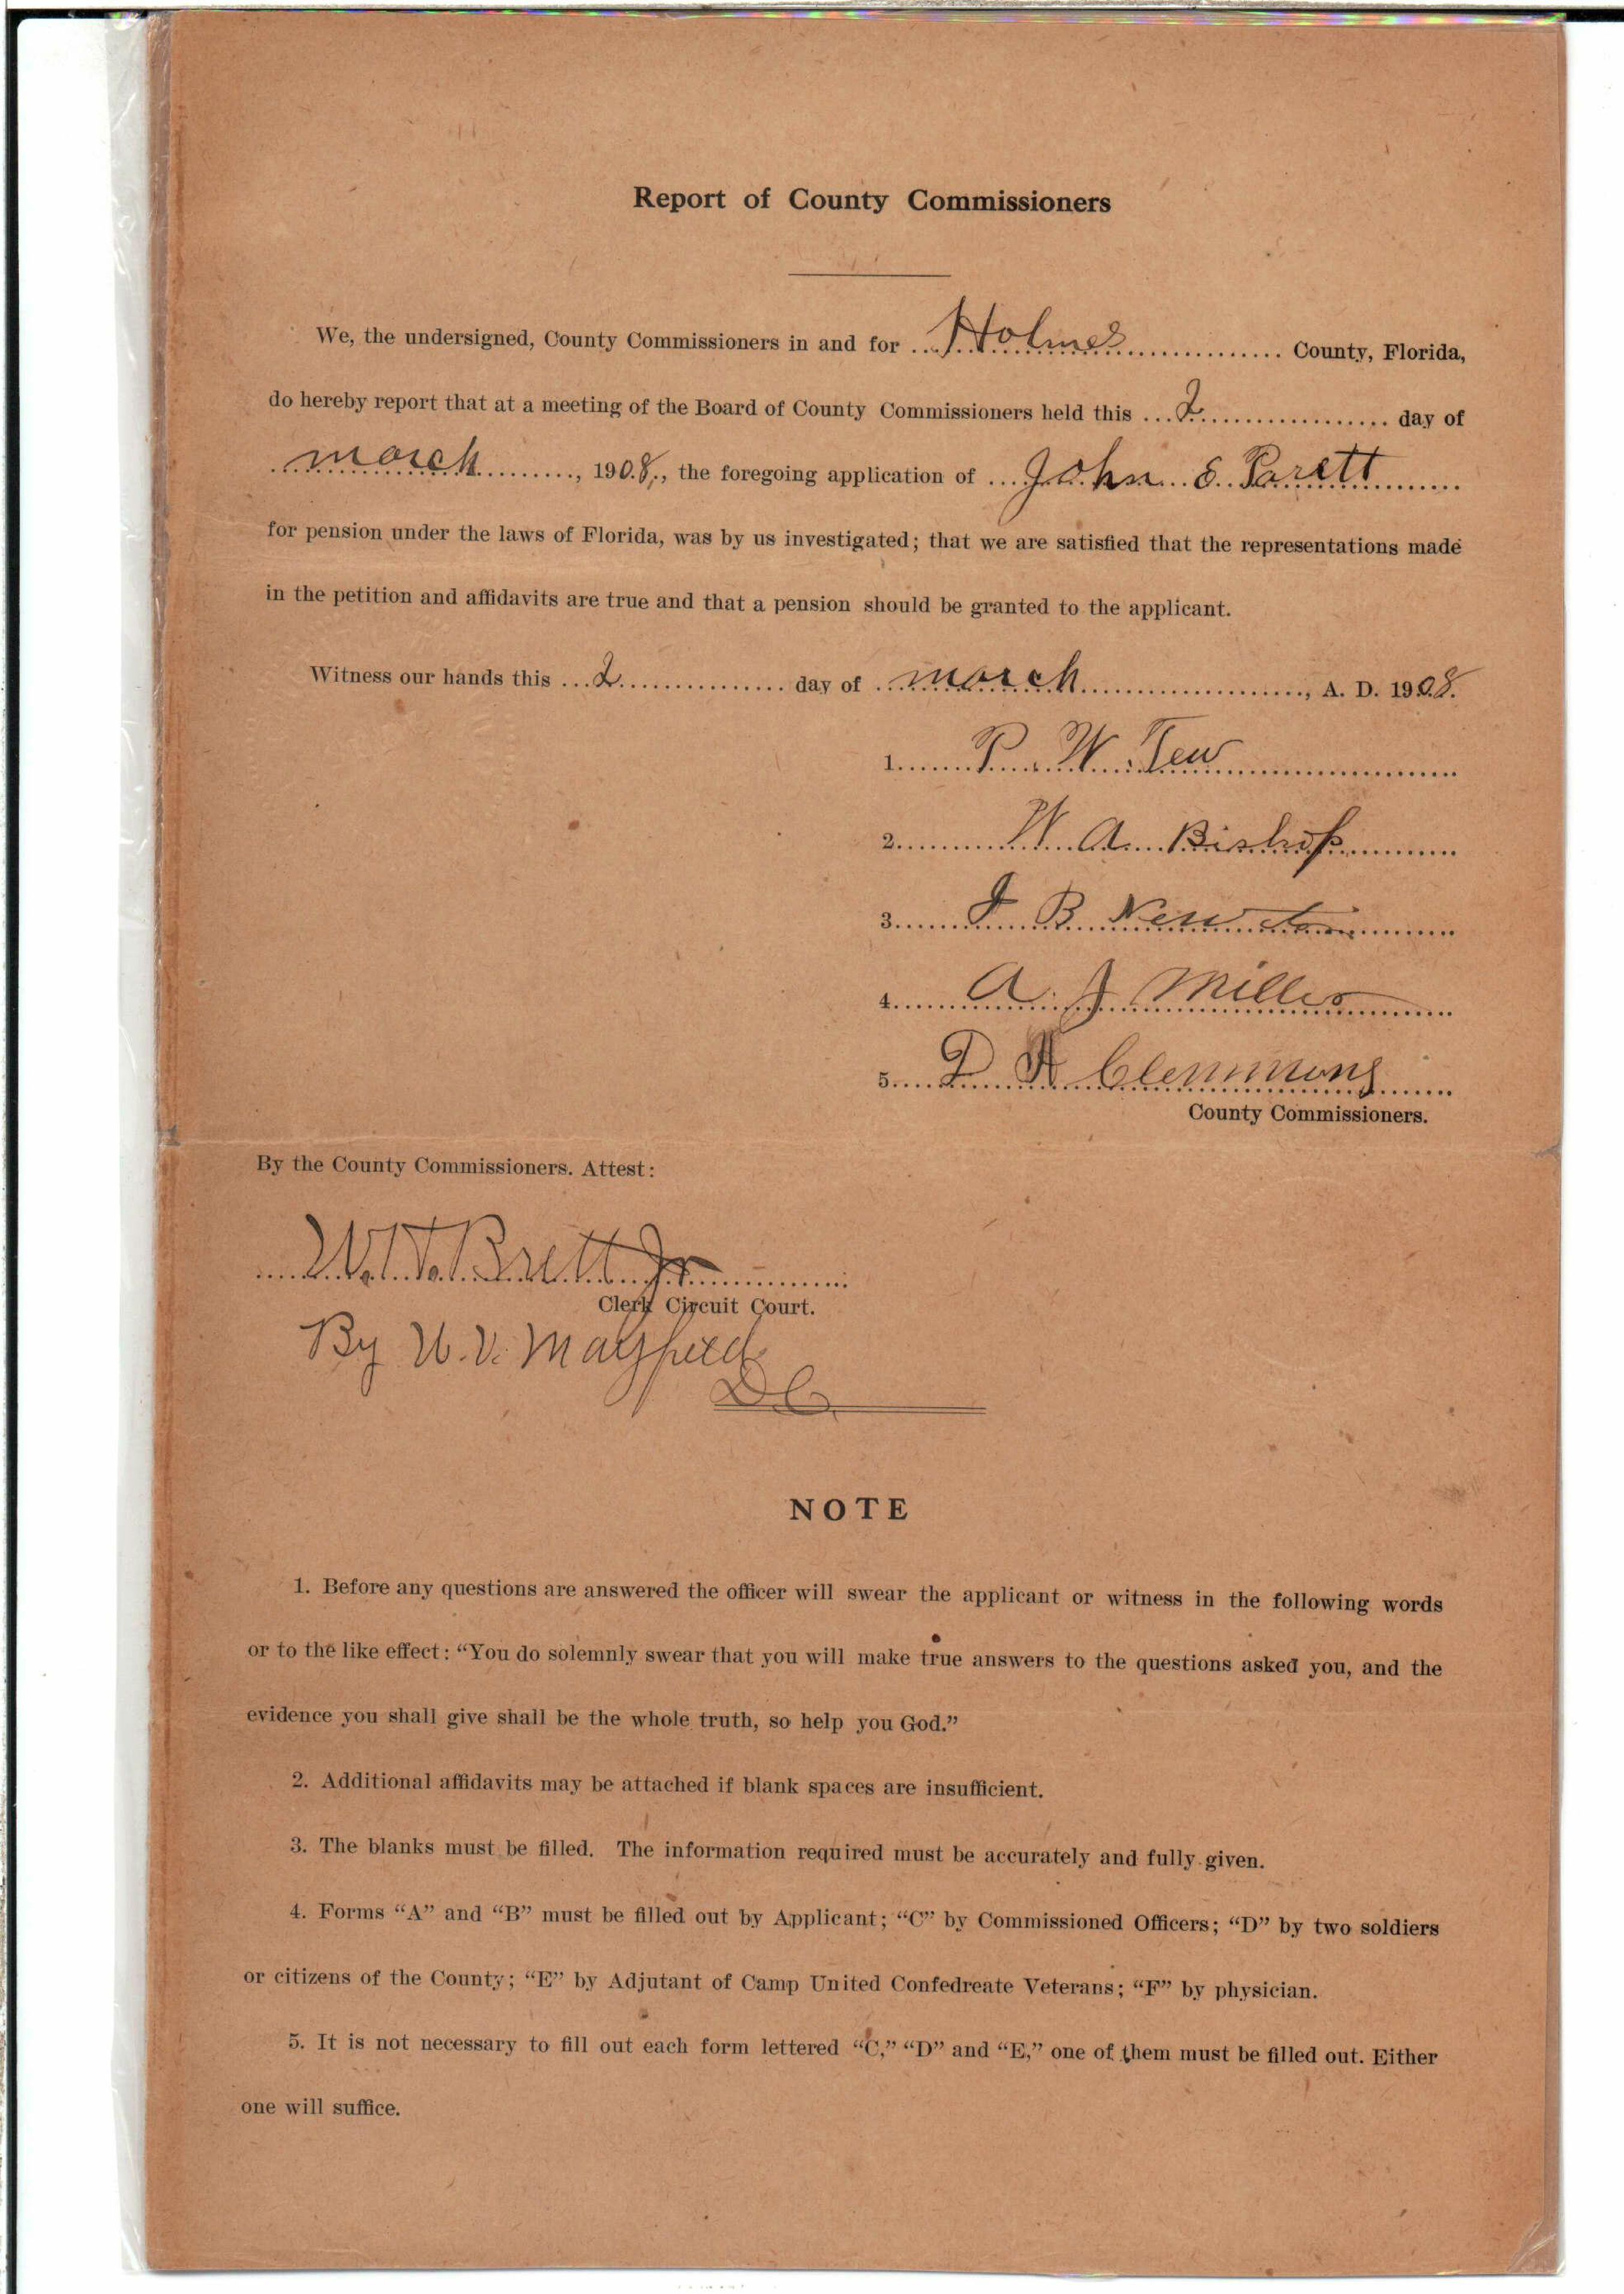 Report of County Commissioners
We, the undersigned, County Commissioners in and for Holmes County, Florida,
do hereby report that at a meeting of the Board of County Commissioners held this 2 day of
march, 1908, the foregoing application of John E. Parett
for pension under the laws of Florida, was by us investigated; that we are satisfied that the representations made
in the petition and affidavits are true and that a pension should be granted to the applicant.
Witness our hands this 2 day of march, A. D. 1908.
1. P. W. Tew
2. W. A. Bishop
3. J B Newton
4. A. J Miller
5. D H Clemmons
County Commissioners.
By the County Commissioners. Attest:
Brett Jr
Clerk Circuit Court.
By W. V. Mayfield
D C.
NOTE
1. Before any questions are answered the officer will swear the applicant or witness in the following words
or to the like effect: “You do solemnly swear that you will make true answers to the questions asked you, and the
evidence you shall give shall be the whole truth, so help you God.”
2. Additional affidavits may be attached if blank spaces are insufficient.
3. The blanks must be filled. The information required must be accurately and fully given.
4. Forms “A” and “B” must be filled out by Applicant; “C” by Commissioned Officers; “D” by two soldiers
or citizens of the County; “E” by Adjutant of Camp United Confedreate Veterans; “F” by physician.
5. It is not necessary to fill out each form lettered “C,” “D” and “E,” one of them must be filled out. Either
one will suffice.